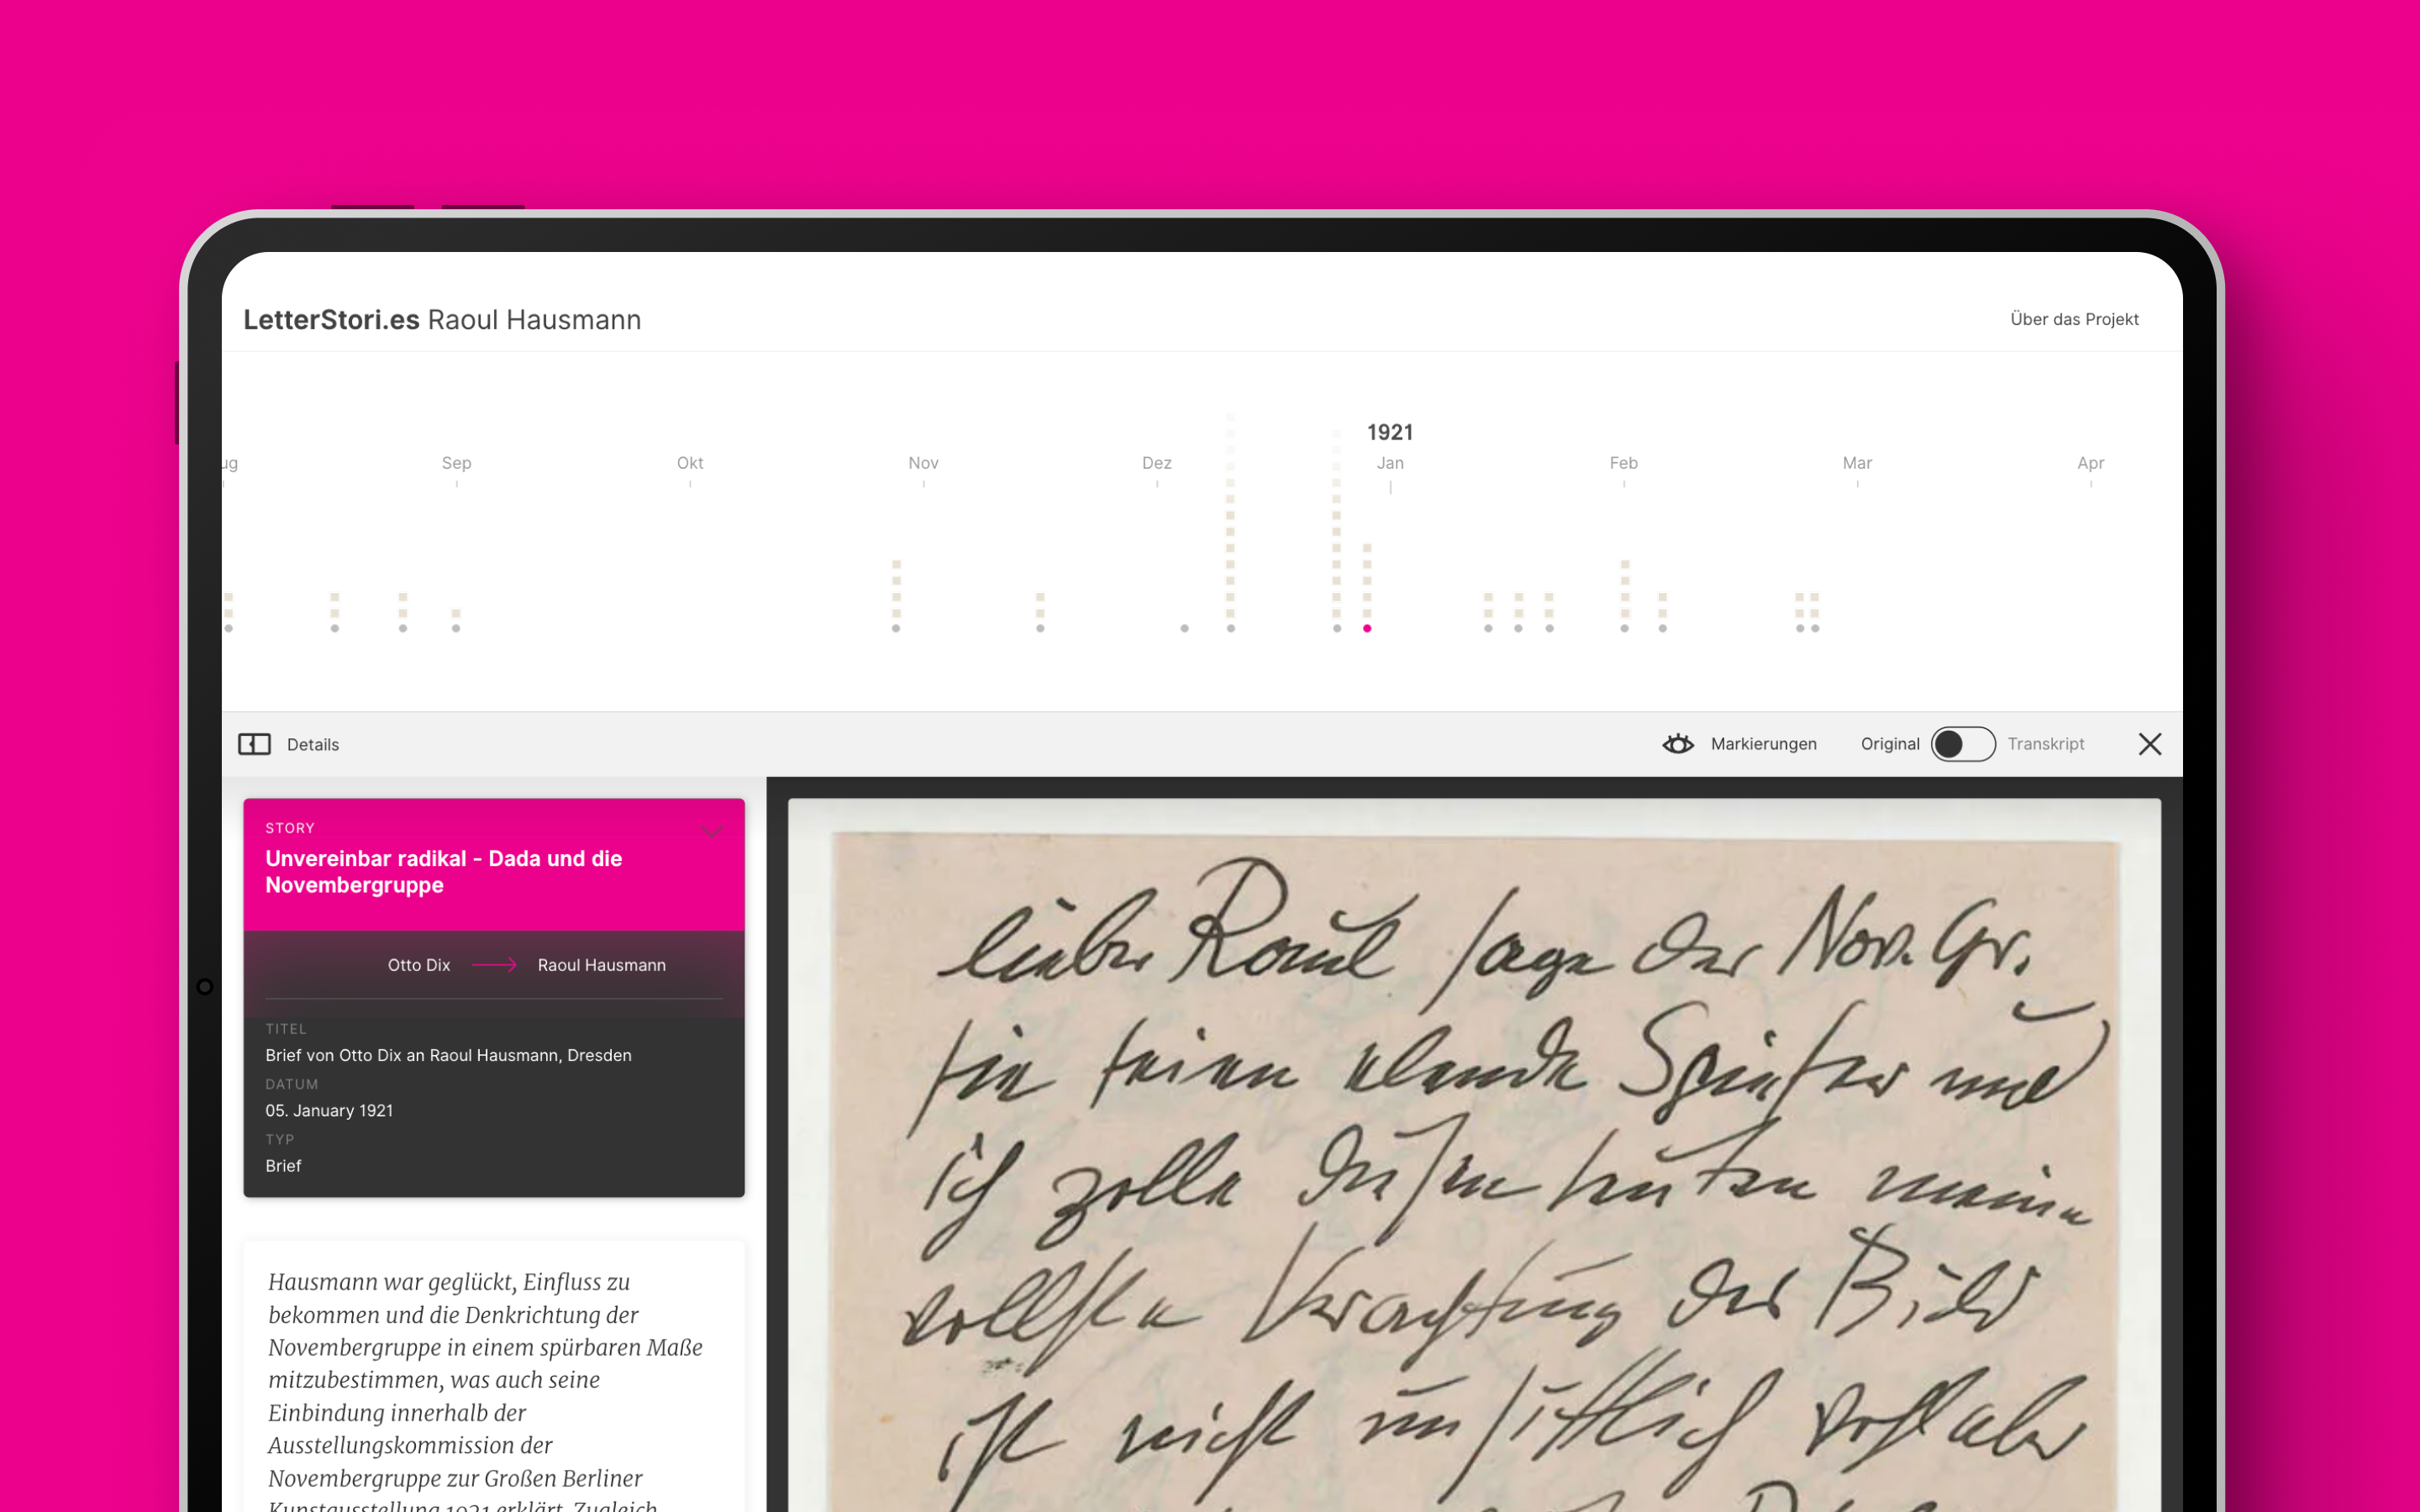 LetterStori.es Raoul Hausmann
Über das Projekt
1921
ug Sep Okt Nov Dez Jan Feb Mar Apr
Details
Markierungen
Original
Transkript
STORY
Unvereinbar radikal - Dada und die
Novembergruppe
Otto Dix
Raoul Hausmann
TITEL
Brief von Otto Dix an Raoul Hausmann, Dresden
DATUM
05. January 1921
TYP
Brief
Hausmann war geglückt, Einfluss zu
bekommen und die Denkrichtung der
Novembergruppe in einem spürbaren Maße
mitzubestimmen, was auch seine
Einbindung innerhalb der
Ausstellungskommission der
Novembergruppe zur Großen Berliner
Kunstausstellung 1921 erklärt. Zugleich
lieber Raoul sage der Nov. Gr.
sie seien elende Spießer und
ich zolle diesen Leuten meine
vollste Verachtung das Bild
ist nicht unsittlich wohl aber